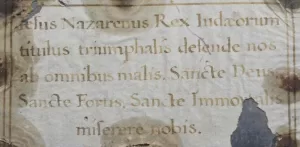 Jesus Nazarenus Rex Iudæorum
titulus triumphalis defende nos
ab omnibus malis. Sancte Deus,
Sancte Fortis, Sancte Immortalis
miserere nobis.